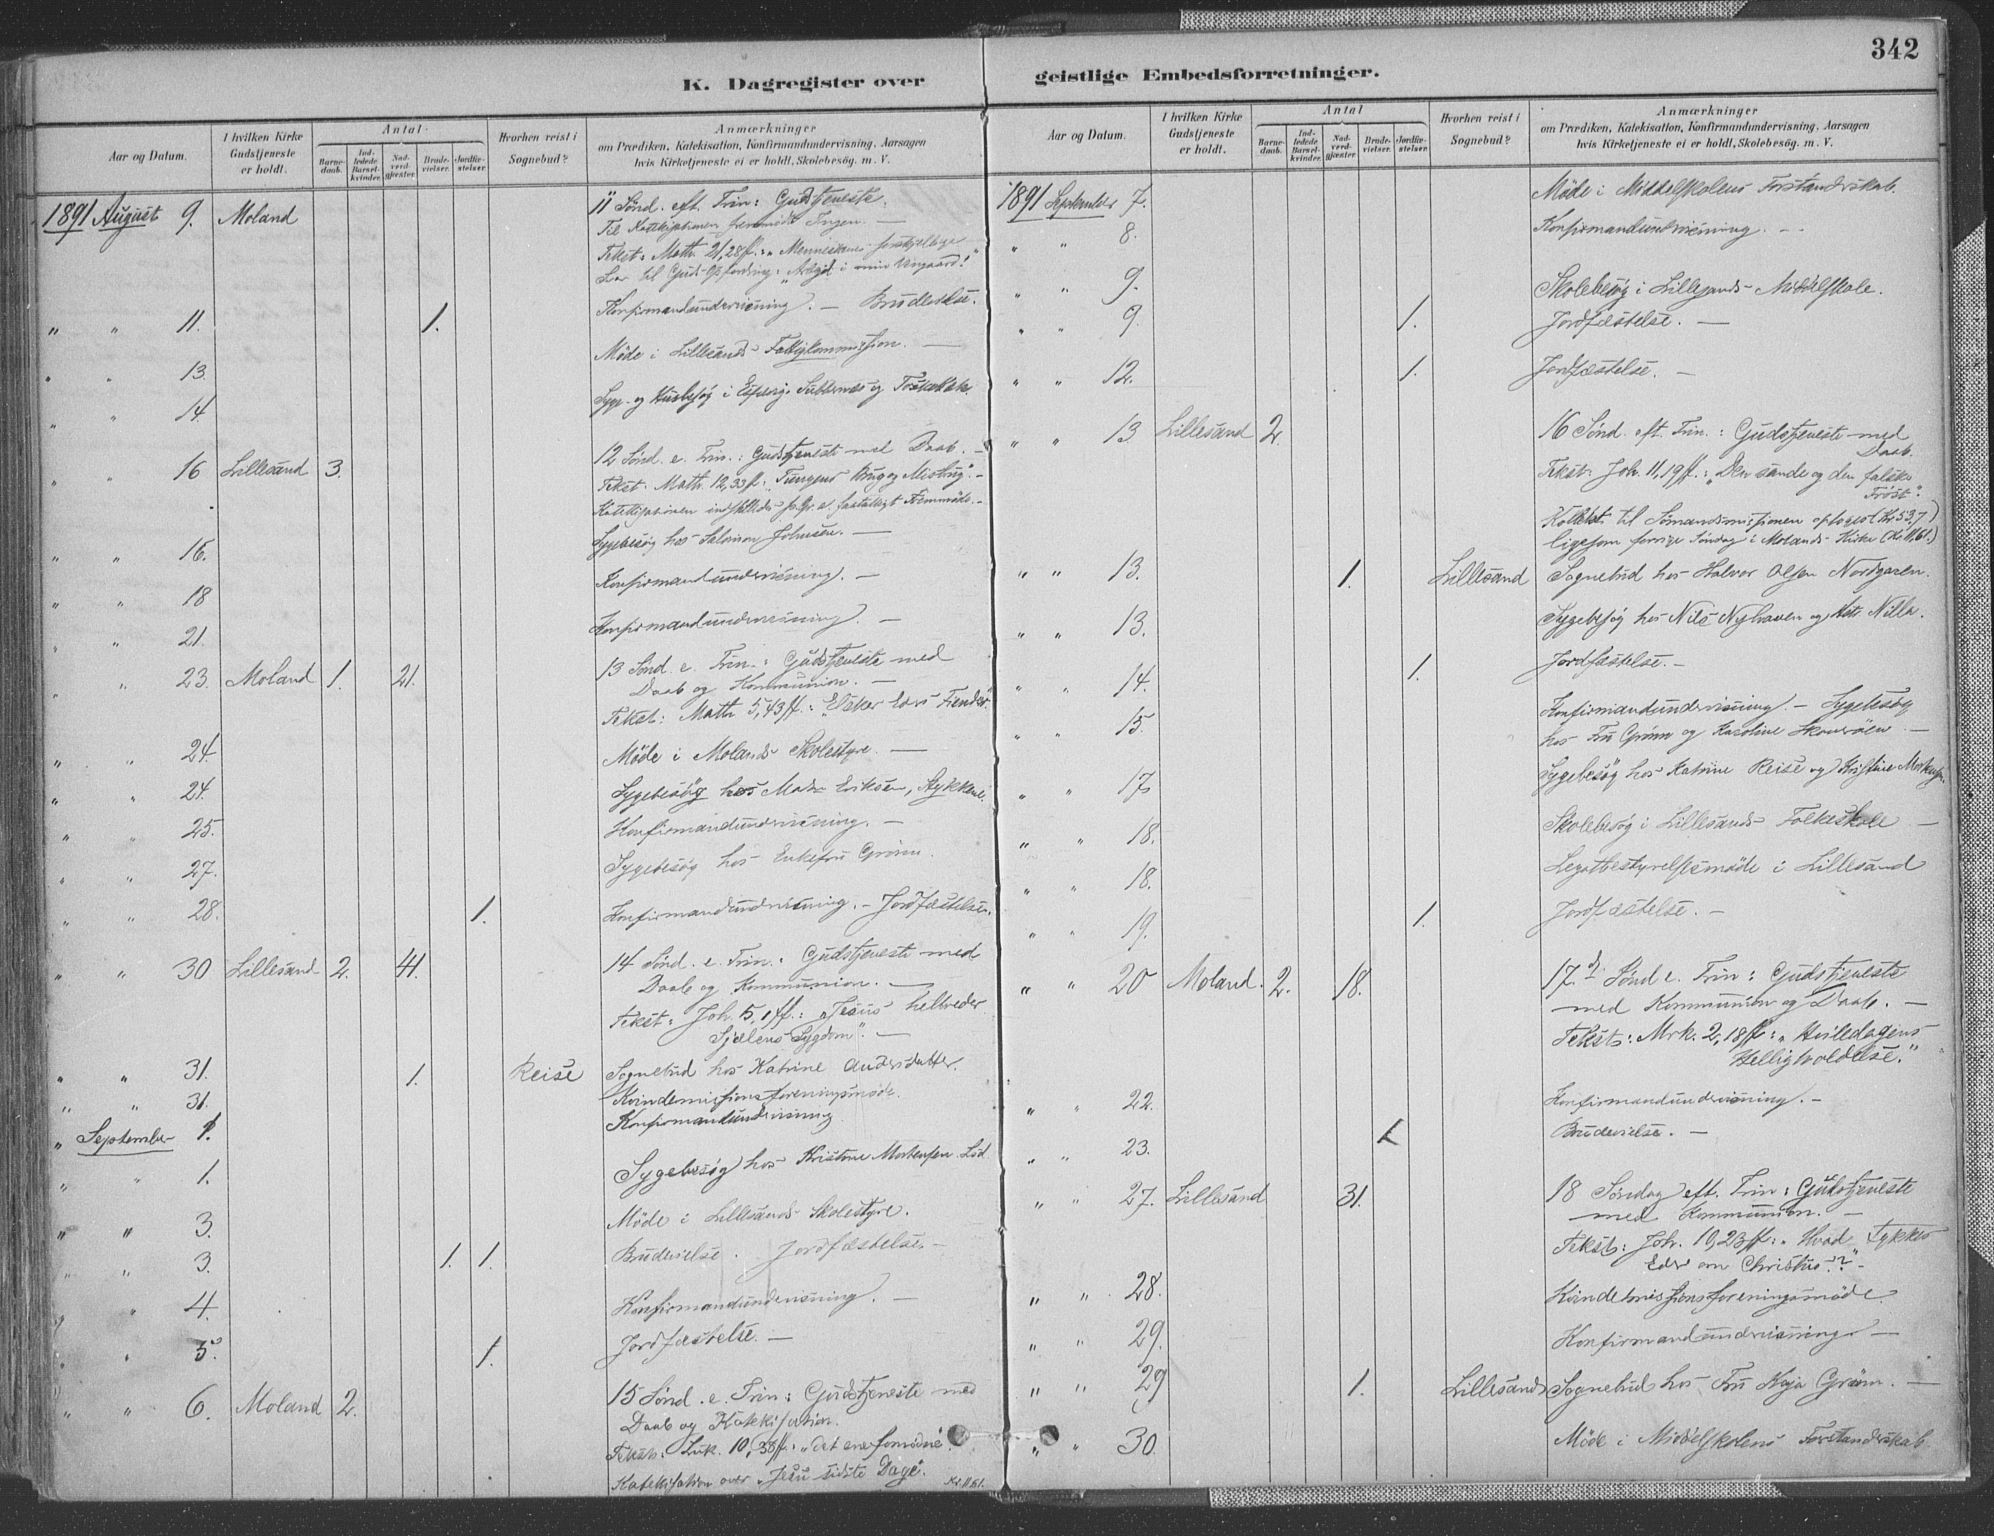 342
K. Dagregister over geistlige Embedsforretninger.
Aar og Datum.
I hvilken Kirke Gudstjeneste er holdt.
Antal
Barnedaab.
Indledede Barselkvinder.
Nadverdgjæster.
Brudevielser.
Jordfæstelser
Hvorhen reist i Sognebud?
Anmærkninger
om Prædiken, Katekisation, Konfirmandundervisning, Aarsagen
hvis Kirketjeneste ei er holdt, Skolebesög. m. V.
1891 August 9. Moland 11 Sönd. eft. Trin: Gudstjeneste.
Til Katekisationen fremmödte Ingen. —
Tekst: Math. 21,28ff.: "Menneskenes forskjellige
Kaar til Guds Opfordring: "Arbeid i min Vingaard!"
" " 11. 1. Konfirmandundervisning. — Brudevielse.
" " 13. Möde i Lillesands Fattigkommission. —
" " 14. Syge- og Husbesög i
" " 16 Lillesand 3. 12 Sönd. e. Trin.: Gudstjeneste med Daab. —
Tekst: Math. 12,33ff: "Tungens Brug og Misbrug". —
Katekisationen indstilledes p. Gr. af faatalligt Fremmöde. —
" " 16. Sygebesög hos Salomon Johnsen. —
" " 18 Konfirmandundervisning. —
" " 21. Konfirmandundervisning. —
" " 23. Moland 1. 21. 13 Sönd. e. Trin.: Gudstjeneste med
Daab og Kommunion. —
Tekst: Math 5,43ff.: "Elsker Eders Fiender"
" " 24. Möde i Molands Skolestyre. —
" " 24. Sygebesög hos Mads Eriksen,
" " 25. Konfirmandundervisning. —
" " 27. Sygebesög hos Enkefru Grönn.
" " 28. 1. Konfirmandundervisning. — Jordfæstelse.
" " 30 Lillesand 2. 41. 14 Sönd. e. Trin.: Gudstjeneste med
Daab og Kommunion. —
Tekst: Joh. 5,1ff.: "Jesus helbreder
Sjælens Sygdom". —
" " 31. 1. Reise Sognebud hos Katrine Andersdatter.
" " 31. Kvindemissionsforeningsmöde.
" September 1. Konfirmandundervisning
" " 1. Sygebesög hos Kristine Mortensen
" " 3. Möde i Lillesands Skolestyre.
" " 3. 1. 1. Brudevielse. Jordfæstelse. —
" " 4. Konfirmandundervisning. —
" " 5. 1. Jordfæstelse. —
" " 6. Moland 2. 15 Sönd. e. Trin: Gudstjeneste med
Daab og Katekisation.
Tekst: Luk. 10,38ff: "det ene fornödne".
Katekisation over "Jesu sidste Dage". Kr. 11.61.
Aar og Datum.
I hvilken Kirke Gudstjeneste er holdt.
Antal
Barnedaab.
Indledede Barselkvinder.
Nadverdgjæster.
Brudevielser.
Jordfæstelser
Hvorhen reist i Sognebud?
Anmærkninger
om Prædiken, Katekisation, Konfirmandundervisning, Aarsagen
hvis Kirketjeneste ei er holdt, Skolebesög. m. V.
1891 September 7. Möde i Middelskolens Forstanderskab.
" " 8. Konfirmandundervisning. —
" " 9. Skolebesög i Lillesands Middelskole.
" " 9. 1. Jordfæstelse. —
" " 12. 1. Jordfæstelse. —
" " 13 Lillesand 2. 16 Sönd. eft. Trin.: Gudstjeneste med
Daab.
Tekst: Joh. 11,19ff.: "Den sande og den falske
Tröst".
Kollekt til Sömandsmissionen optoges (Kr. 53,7)
ligesom forrige Söndag i Molands Kirke (Kr. 11,61.)
" " 13. 1. Lillesand Sognebud hos Halvor Olsen Nordgaren.
" " 13. Sygebesög hos Nils Nyhaven og
" " 14. 1. Jordfæstelse. —
" " 15. Konfirmandundervisning. — Sygebesög
hos Fru Grönn og Karoline —
" " 17 Sygebesög hos Katrine Reise og Kristine
" " 18. Skolebesög i Lillesands Folkeskole —
" " 18. Legatbestyrelsesmöde i Lillesand
" " 19. 1. Jordfæstelse. —
" " 20 Moland. 2. 18. 17. Sönd e. Trin: Gudstjeneste
med Kommunion og Daab. —
Tekst: Mrk. 2,18ff: "Hviledagens
Helligholdelse."
" " 22. Konfirmandundervisning. —
" " 23. 1. Brudevielse. —
" " 27. Lillesand 31. 18 Söndag eft. Trin: Gudstjeneste
med Kommunion. —
Tekst: Joh. 10,23ff: "Hvad tykkes
Eder om Christus?" —
" " 28. Kvindemissionsforeningsmöde.
" " 29. Konfirmandundervisning —
" " 29 1. Lillesand Sognebud hos Fru Kaja Grönn. —
" " 30. Möde i Middelskolens Forstanderskab